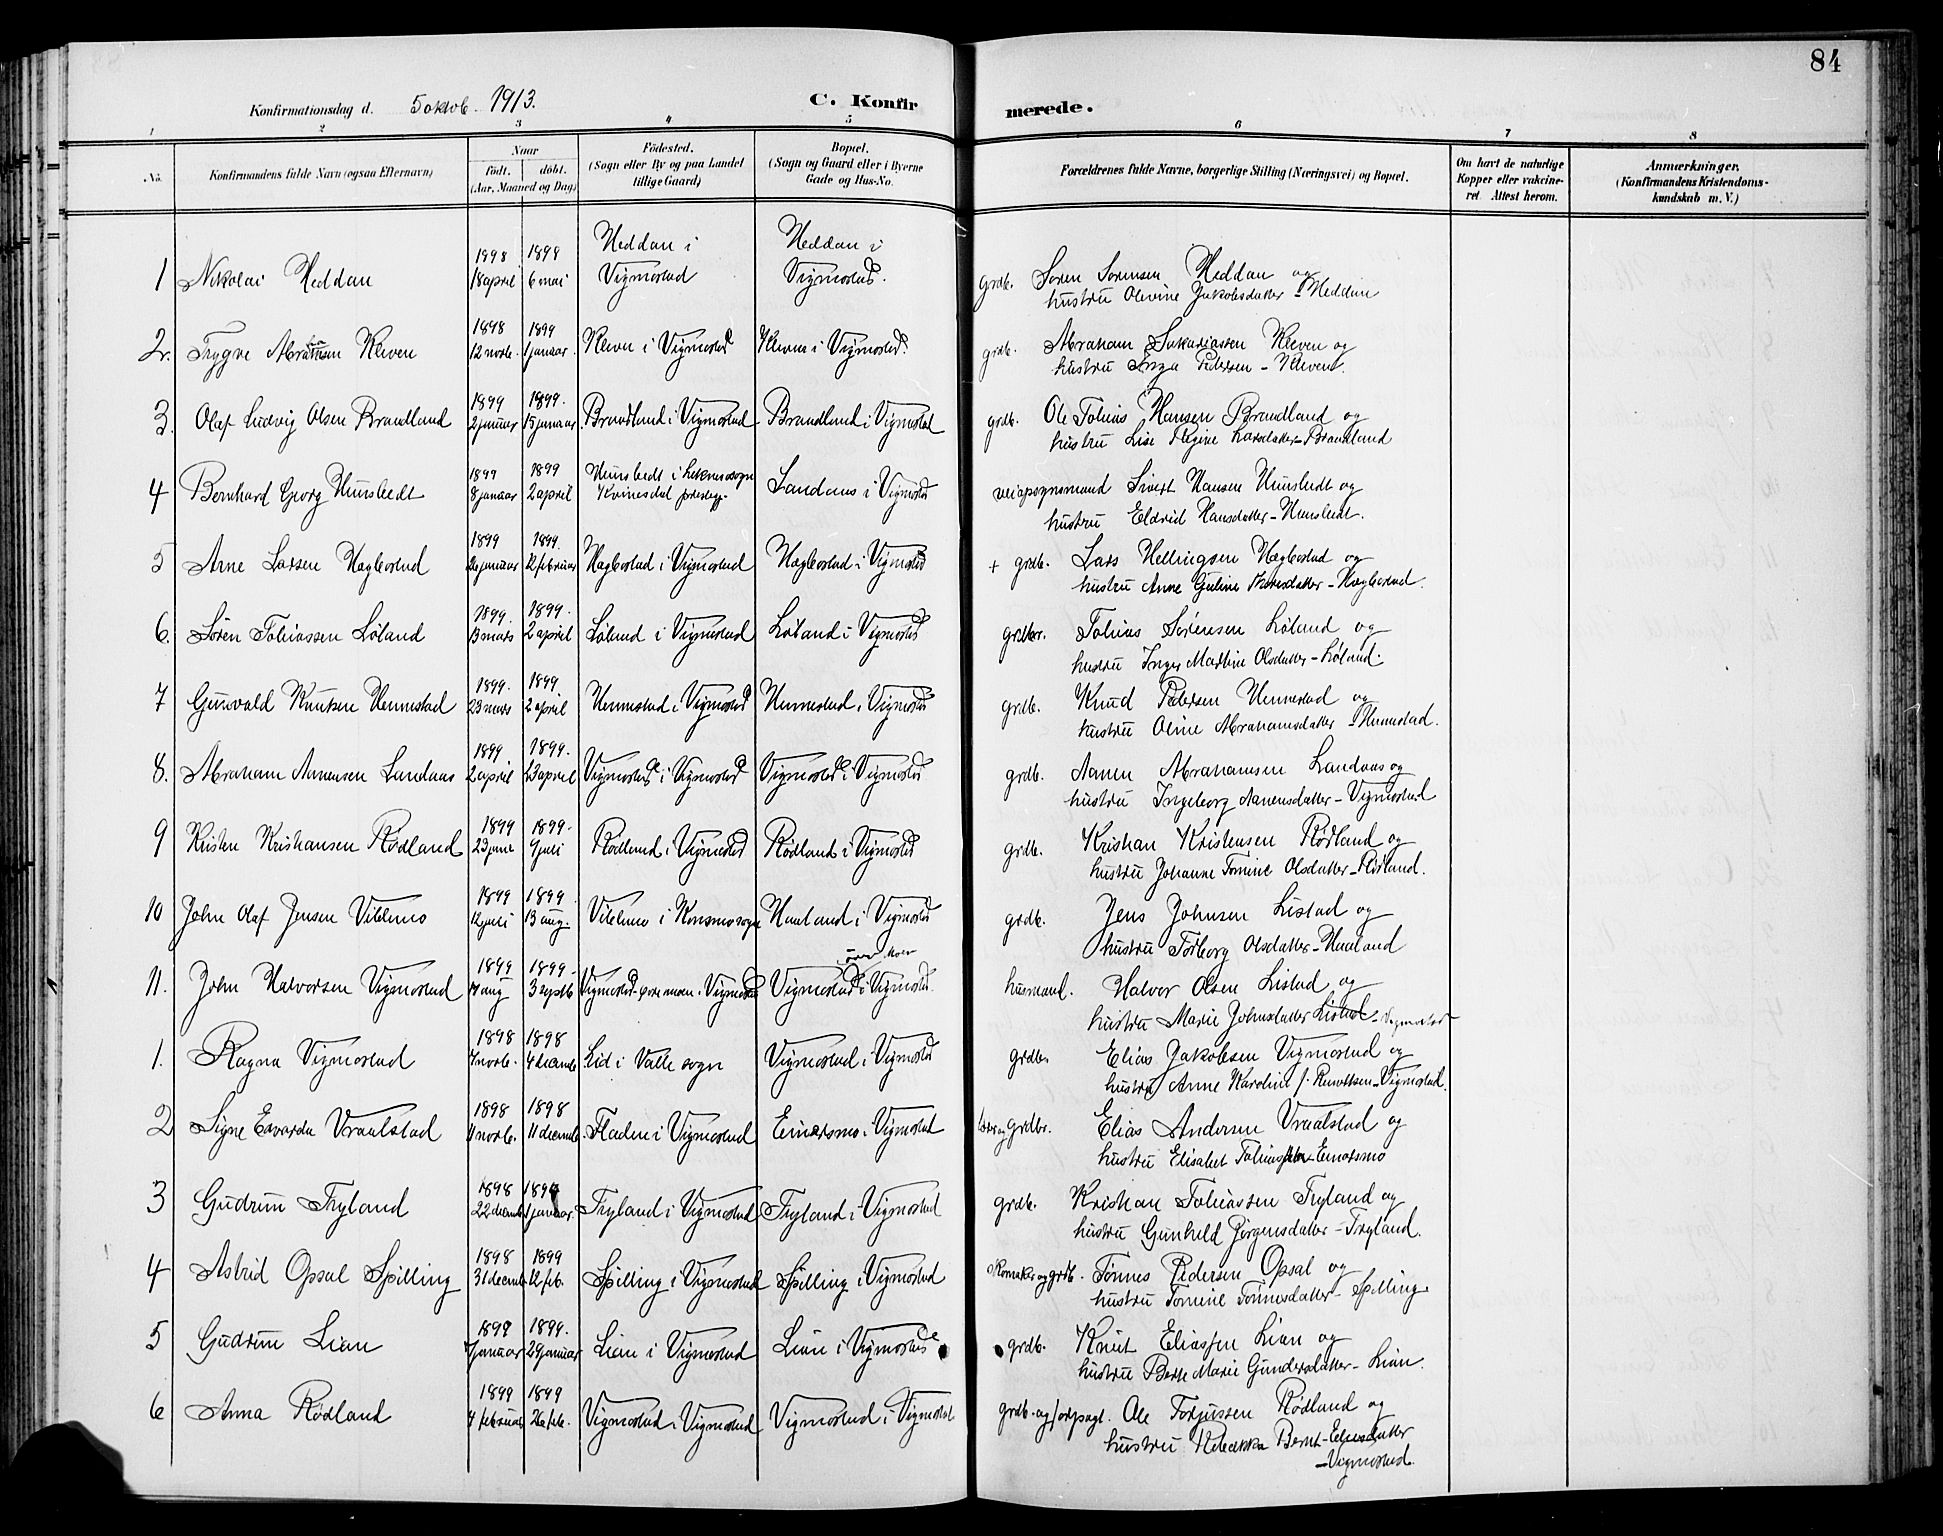 84
Konfirmationsdag d. 5 oktob. 1913. C. Konfirmerede.
1 2 3 4 5 6 7 8
No. Konfirmandens fulde Navn (ogsaa Efternavn)
Naar
født. døbt.
(Aar, Maaned og Dag)
Fødested.
(Sogn eller By og paa Landet
tillige Gaard)
Bopæl.
(Sogn og Gaard eller i Byerne
Gade og Hus-No.
Forældrenes fulde Navne, borgerlige Stilling (Næringsvei) og Bopæl.
Om havt de naturlige
Kopper eller vakcine-
ret. Attest herom.
Anmærkninger.
(Konfirmandens Kristendoms-
kundskab m. V.)
1 Nikolai Heddan 1898 18 april 1898 6 mai Heddan i Vigmostad Heddan i Vigmostad. grdb. Søren Sørensen Heddan og
hustru Olevine Jakobsdatter - Heddan
2. Trygve Kleven 1898 12 novb. 1899 1 januar. Kleven i Vigmostad Kleven i Vigmostad. grdb. Abraham Sakariassen Kleven og
hustru Inga Pedersen - Kleven.
3. Olaf Ludvig Olsen Brandland 1899 2 januar 1899. 15 januar. Brandland i Vigmostad Brandland i Vigmostad grdb. Ole Tobias Hansen Brandland og
hustru Lise Regine Larsdatter - Brandland
4 Bernhard Georg Hunsbedt 1899 8 januar 1899 2 april Hunsbedt i sogn Kvinesdal prestegj. Landaas i Vigmostad Sivert Hansen Hunsbedt og
hustru Eldrid Hansdatter - Hunsbedt.
5 Arne Larsen Hægbostad 1899 26 januar 1899. 12 februar Hægbostad i Vigmostad Hægbostad i Vigmostad + grdb. Lars Hægbostad og
hustru Anne Guline - Hægbostad.
6. Søren Tobiassen Løland 1899. 13 mars 1899. 2 april Løland i Vigmostad Løland i Vigmostad grdbr. Tobias Sørensen Løland og
hustru Inger Martine Olsdatter - Løland.
7 Gunvald Knutsen Hennestad 1899. 23 mars 1899 2 april Hennestad i Vigmostad Hennestad i Vigmostad grdb. Knud Pedersen Hennestad og
hustru Oline Abrahamsdatter - Hennestad.
8. Abraham Aanensen Landaas 1899 2 april 1899. 23 april Vigmostad i Vigmostad Vigmostad i Vigmostad grdb. Aanen Abrahamsen Landaas og
hustru Ingeborg Aanensdatter - Vigmostad
9 Kristen Kristiansen Rødland 1899 23 juni 1899. 9 juli Rødland i Vigmostad Rødland i Vigmostad grdb. Kristian Kristensen Rødland og
hustru Johanne Tomine Olsdatter - Rødland.
10 John Olaf Jensen Vitlemo 1899 12 juli 1899. 13 aug. Vitlemo i Konsmo sogn Haaland i Vigmostad grdb. Jens Johnsen Listad og
hustru Torborg Olsdatter - Haaland
11. John Halvorsen Vigmostad 1899 aug 1899. 3 septb Vigmostad øvre moen i Vigmostad Vigmostad øvre Moen i Vigmostad. husmand. Halvor Olsen Listad og
hustru Marie Johnsdatter Listad - Vigmostad
1. Ragna Vigmostad 1898 novb. 1898 4 decemb. Lid i Valle sogn Vigmostad i Vigmostad grdb. Elias Jakobsen Vigmostad og
hustru Anne Karoline f. - Vigmostad.
2 Signe Edvarda Vraalstad 1898 novb. 1898 11 decemb. Fladen i Vigmostad Einersmo i Vigmostad grdbr. Elias Andersen Vraalstad og
hustru Elisabet Tobiasdatter - Einersmo
3 Gudrun Tryland 1898 22 decemb 1899 1 januar. Tryland i Vigmostad Tryland i Vigmostad grdb. Kristian Tobiassen Tryland og
hustru Gunhild Jørgensdatter - Tryland.
4 Astrid Opsal Spilling 1898 31 decemb 1899 12 feb. Spilling i Vigmostad Spilling i Vigmostad skomaker og grdb. Tønnes Pedersen Opsal og
hustru Tomine Tønnesdatter - Spilling
5 Gudrun Lian 1899 januar 1899. 29 januar Lian i Vigmostad Lian i Vigmostad grdb. Knut Eliassen Lian og
hustru Berte Marie Gundersdatter - Lian.
6 Anna Rødland 1899 4 februar 1899 26 feb. Vigmostad i Vigmostad Vigmostad i Vigmostad grdb. og forpagt. Ole Torjussen Rødland og
hustru Rebekka Bernt-Eliasdatter
- Vigmostad.